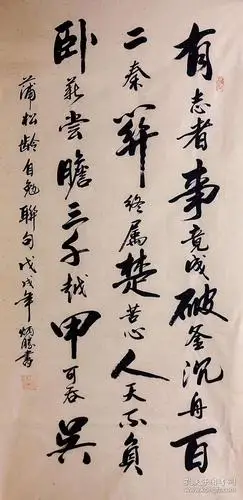 有志者事竟成破釜沉舟百
二秦關终属楚苦心人天不负
卧薪嘗膽三千越甲可吞吴
蒲松龄自勉聯句戊戌年炳勝書